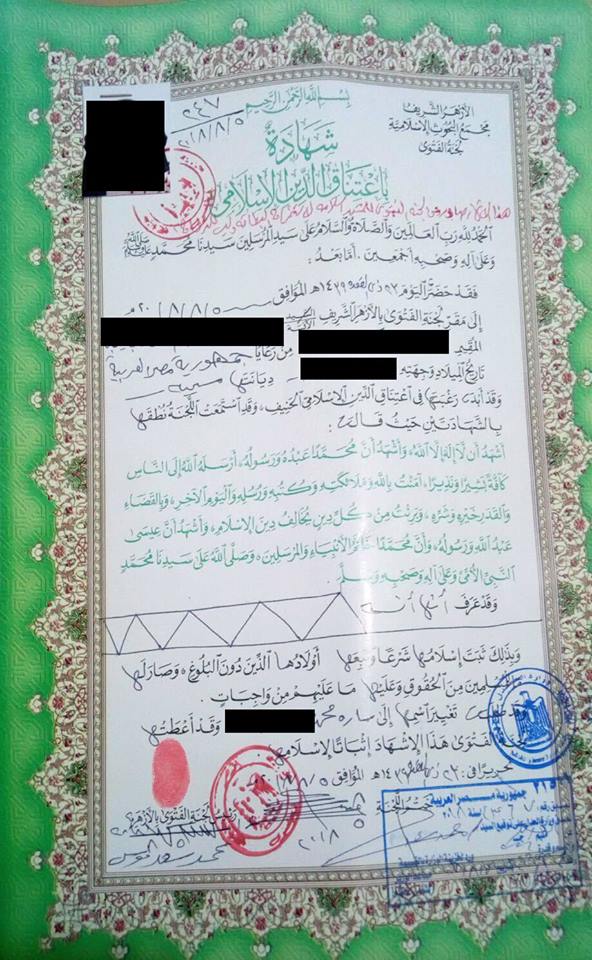 بِسْمِ اللَّهِ الرَّحْمَنِ الرَّحِيمِ
الأزهر الشريف
مجمع البحوث الإسلامية
لجنة الفتوى
٢٤٧
٢٠١٨/٨/٥
شهادة
باعتناق الدين الإسلامي
الحمد لله رب العالمين والصلاة والسلام على سيد المرسلين سيدنا محمد ﷺ
وعلى آله وصحبه أجمعين. أما بعد:
فقد حضرت اليوم ٢٣ ذي القعدة ١٤٣٩هـ الموافق ٢٠١٨/٨/٥م
إلى مقر لجنة الفتوى بالأزهر الشريف السيد
الآنسة
المقيم من رعايا جمهورية مصر العربية
تاريخ الميلاد وجهته ديانتها مسيحية
وقد أبدت رغبتها في اعتناق الدين الإسلامي الحنيف، وقد استمعت اللجنة نطقها
بالشهادتين حيث قالت:
أشهد أن لا إله إلا الله، وأشهد أن محمدا عبده ورسوله، أرسله الله إلى الناس
كافة بشيرا ونذيرا، آمنت بالله وملائكته وكتبه ورسله واليوم الآخر، وبالقضاء
والقدر خيره وشره، وبرئت من كل دين يخالف دين الإسلام، وأشهد أن عيسى
عبد الله ورسوله، وأن محمدا خاتم الأنبياء والمرسلين، وصلى الله على سيدنا محمد
النبي الأمي وعلى آله وصحبه وسلم.
وقد عرف
وبذلك ثبت إسلامها شرعا ويتبعها أولادها الذين دون البلوغ، وصار لها
للمسلمين من الحقوق وعليها ما عليهم من واجبات.
تغيير اسمها إلى سارة محمد وقد أعطتها
الفتوى هذا الإشهاد إثباتا لإسلامها
تحريرا في: ٢٣ ١٤٣٩هـ الموافق ٢٠١٨/٨/٥م
ختم اللجنة رئيس لجنة الفتوى بالأزهر
٢٠١٨
جمهورية مصر العربية